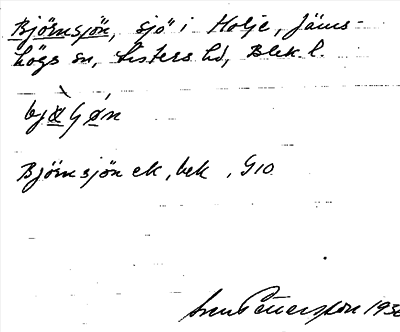 Björnsjön, sjö i Holje, Jäms-
högs sn, Listers hd, Blek l.
Björnsjön ek, bek, G10
Sven Petersson 1936